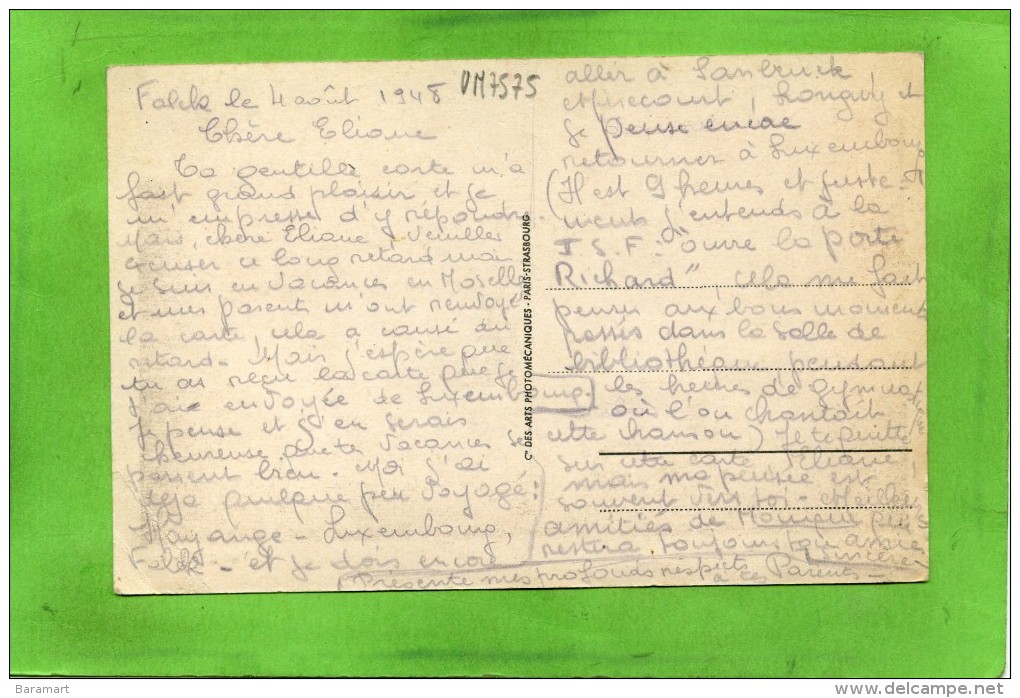 Falck le 4 août 1948
Chère Eliane
Ta gentille carte m'a
fait grand plaisir et je
m'empresse d'y répondre.
Mais, chère Eliane Veuillez
excuser ce long retard mais
je suis en vacances en Moselle
et mes parents m'ont renvoyé
la carte, cela a causé du
retard. Mais j'espère que
tu as reçu la carte que je
t'aie envoyée de Luxembourg.
Je pense et j'en serais
heureuse que tes vacances se
passent bien. Moi j'ai
déjà quelque peu voyagé:
Hayange - Luxembourg,
Falck - et je dois encore
VM7575
aller à Sarrebruck,
, Longwy et
je pense encore
retourner à Luxembourg
(Il est 9 heures et juste-
ment j'entends à la
T.S.F: "ouvre la porte
Richard" cela me fait
penser aux bons moments
passés dans la salle de
bibliothèque pensant
les heures de gymnastique
où l'on chantait
cette chanson) Je te quitte
sur cette carte Eliane,
mais ma pensée est
souvent vers toi. Meilleures
amitiés de Monique qui
restera toujours ton amie
sincère.
Présente mes profonds respects
à tes Parents -
Cie DES ARTS PHOTOMÉCANIQUES - PARIS-STRASBOURG
Baramart
delcampe.net